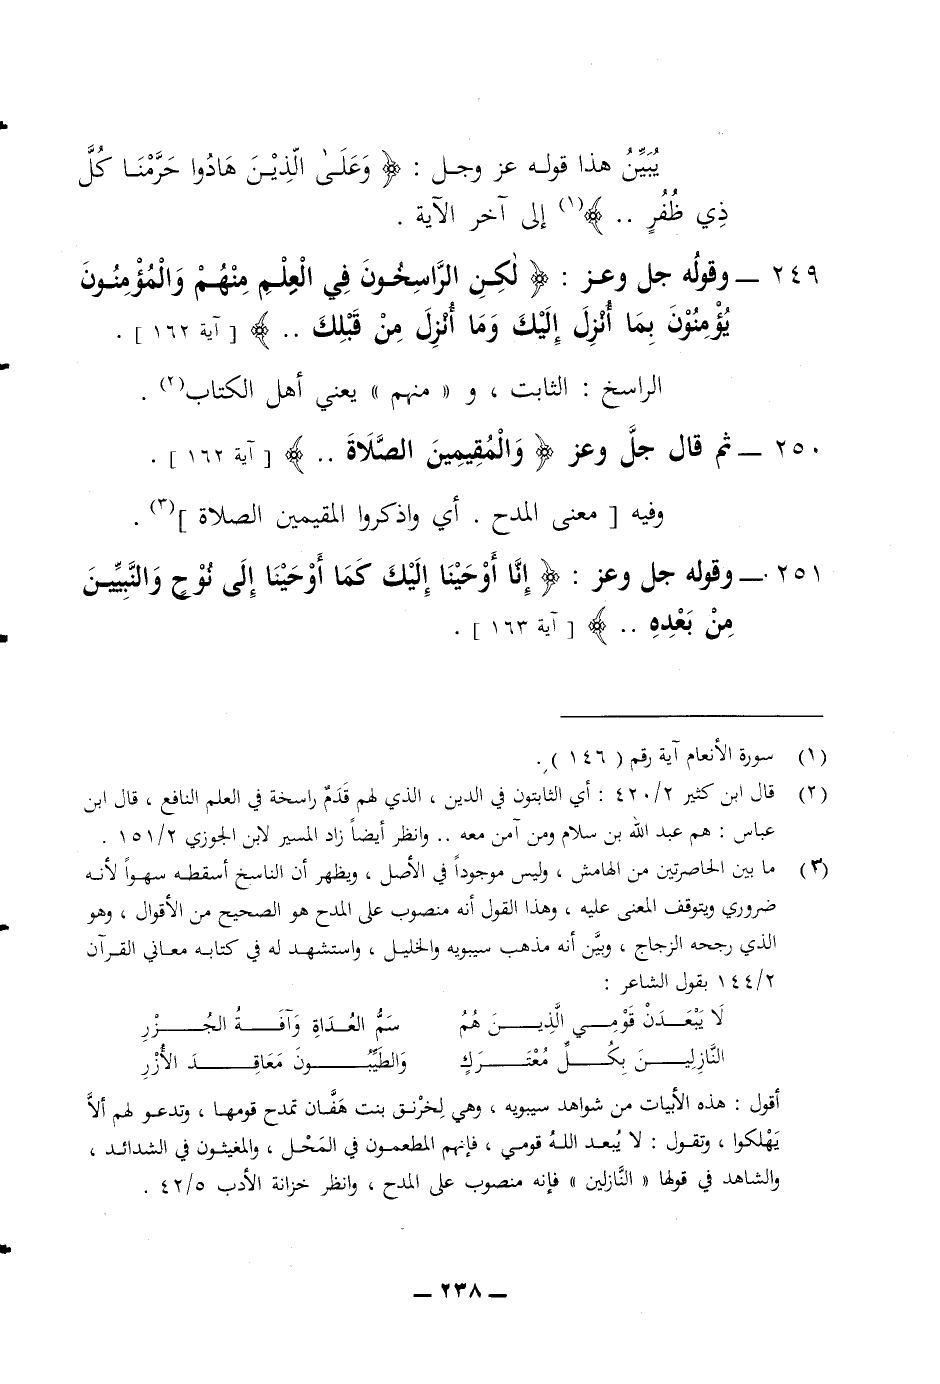 يُبَيِّنُ هذا قوله عز وجل : ﴿ وَعَلَىٰ الَّذِيْنَ هَادُوا حَرَّمْنَا كُلَّ
ذِي ظُفُرٍ .. ﴾(١) إلى آخر الآية .
٢٤٩ ــ وقولُه جل وعز : ﴿ لٰكِنِ الرَّاسِخُونَ فِي الْعِلْمِ مِنْهُمْ وَالْمُؤْمِنُونَ
يُؤْمِنُوْنَ بِمَا أُنْزِلَ إِلَيْكَ وَمَا أُنْزِلَ مِنْ قَبْلِكَ .. ﴾ [ آية ١٦٢ ] .
الراسخ : الثابت ، و « منهم » يعني أهل الكتاب(٢) .
٢٥٠ ــ ثم قال جلَّ وعز ﴿ وَالْمُقِيمِينَ الصَّلَاةَ .. ﴾ [ آية ١٦٢ ] .
وفيه [ معنى المدح . أي واذكروا المقيمين الصلاة ](٣) .
٢٥١ ــ وقوله جل وعز : ﴿ إِنَّا أَوْحَيْنَا إِلَيْكَ كَمَا أَوْحَيْنَا إِلَى نُوْحٍ وَالنَّبِيِّينَ
مِنْ بَعْدِهِ .. ﴾ [ آية ١٦٣ ] .
(١) سورة الأنعام آية رقم ( ١٤٦ ) .
(٢) قال ابن كثير ٤٢٠/٢ : أي الثابتون في الدين ، الذي لهم قَدَمٌ راسخة في العلم النافع ، قال ابن
عباس : هم عبد الله بن سلام ومن آمن معه .. وانظر أيضاً زاد المسير لابن الجوزي ١٥١/٢ .
(٣) ما بين الحاصرتين من الهامش ، وليس موجوداً في الأصل ، ويظهر أن الناسخ أسقطه سهواً لأنه
ضروري ويتوقف المعنى عليه ، وهذا القول أنه منصوب على المدح هو الصحيح من الأقوال ، وهو
الذي رجحه الزجاج ، وبيَّن أنه مذهب سيبويه والخليل ، واستشهد له في كتابه معاني القرآن
١٤٤/٢ بقول الشاعر :
لَا يَبْعَدَنْ قَوْمِي الَّذِينَ هُمُ سَمُّ العُدَاةِ وَآفَةُ الجُزْرِ
النَّازِلِينَ بِكُلِّ مُعْتَرَكٍ وَالطَيِّبُونَ مَعَاقِدَ الأُزْرِ
أقول : هذه الأبيات من شواهد سيبويه ، وهي لِخرْنق بنت هَفَّان تمدح قومها ، وتدعو لهم ألاَّ
يَهْلكوا ، وتقول : لا يُبعد اللهُ قومي ، فإنهم المطعمون في المَحْل ، والمغيثون في الشدائد ،
والشاهد في قولها « النَّازلين » فإنه منصوب على المدح ، وانظر خزانة الأدب ٤٢/٥ .
ــ ٢٣٨ ــ